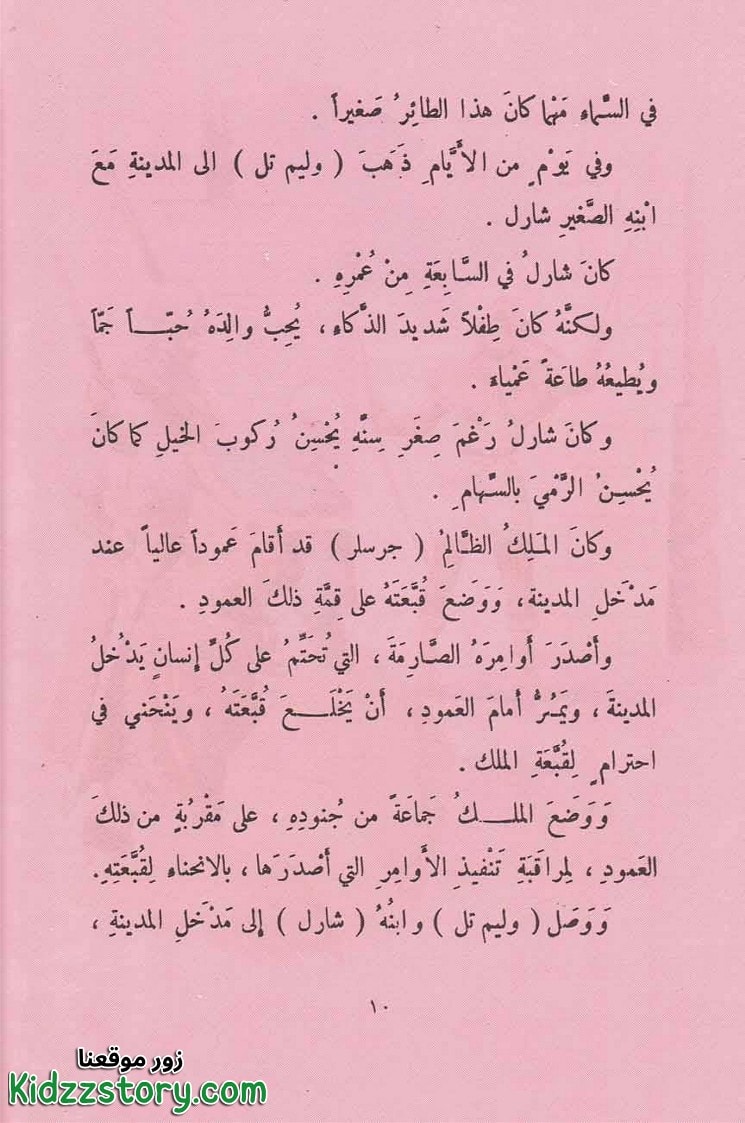 في السَّماءِ مَهْما كانَ هذا الطائِرُ صَغيراً .
وفي يَوْمٍ من الأَيَّامِ ذَهَبَ ( وليم تل ) الى المدينةِ مَعَ
ابْنِهِ الصَّغيرِ شارل .
كانَ شارلُ في السَّابِعَةِ مِنْ عُمْرِهِ .
ولكنَّهُ كانَ طِفْلاً شَديدَ الذَّكاءِ ، يُحِبُّ والِدَهُ حُبّاً جَمّاً
ويُطيعُهُ طاعَةً عَمْياءَ .
وكانَ شارلُ رَغْمَ صِغَرِ سِنِّهِ يُحْسِنُ رُكوبَ الخيلِ كما كانَ
يُحْسِنُ الرَّمْيَ بالسِّهامِ .
وكانَ المَلِكُ الظَّالِمُ ( جرسلر ) قد أَقامَ عَموداً عالياً عند
مَدْخَلِ المدينة ، وَوَضَعَ قُبَّعَتَهُ على قِمَّةِ ذلكَ العمودِ .
وأَصْدَرَ أَوامِرَهُ الصَّارِمَةَ ، التي تُحَتِّمُ على كُلِّ إنسانٍ يَدْخُلُ
المدينةَ ، ويَمُرُّ أمامَ العَمودِ ، أَنْ يَخْلَعَ قُبَّعَتَهُ ، ويَنْحَني في
احترامٍ لِقُبَّعَةِ الملك .
وَوَضَعَ الملكُ جَماعَةً من جُنودِهِ ، على مَقْرُبَةٍ من ذلكَ
العَمودِ ، لِمراقَبَةِ تَنْفيذِ الأَوامِرِ التي أَصْدَرَها ، بالانحناءِ لِقُبَّعَتِهِ.
وَوَصَلَ ( وليم تل ) وابنُهُ ( شارل ) إلى مَدْخَلِ المدينةِ ،
١٠
زور موقعنا
Kidzzstory.com